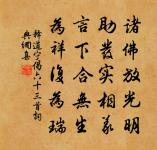 諸佛放光明
助發實相義
言下合無生
為祥復為瑞
釋道寧偈六十三首詞
典綱喜